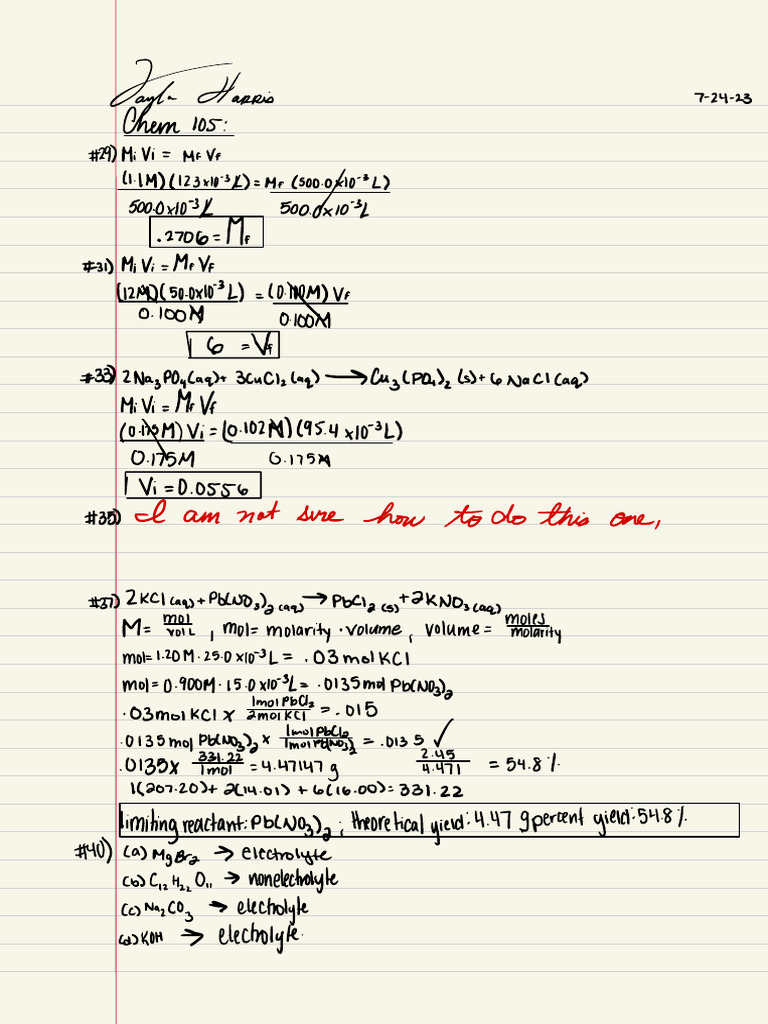 Tayla Harris
7-24-23
Chem 105:
#29) MiVi = MfVf
(1.1M)(123x10⁻³L) = Mf (500.0x10⁻³L)
500.0x10⁻³L 500.0x10⁻³L
.2706 = Mf
#31) MiVi = MfVf
(12M)(50.0x10⁻³L) = (0.100M)Vf
0.100M 0.100M
6 = Vf
#33) 2Na₃PO₄(aq) + 3CuCl₂(aq) → Cu₃(PO₄)₂(s) + 6NaCl(aq)
MiVi = MfVf
(0.175M)Vi = (0.102M)(95.4x10⁻³L)
0.175M 0.175M
Vi = 0.0556
#35) I am not sure how to do this one,
#37) 2KCl(aq) + Pb(NO₃)₂(aq) → PbCl₂(s) + 2KNO₃(aq)
M = mol/vol L, mol = molarity · volume, volume = moles/molarity
mol = 1.20M · 25.0x10⁻³L = .03 mol KCl
mol = 0.900M · 15.0x10⁻³L = .0135 mol Pb(NO₃)₂
.03 mol KCl x 1mol PbCl₂/2mol KCl = .015
.0135 mol Pb(NO₃)₂ x 1mol PbCl₂/1mol Pb(NO₃)₂ = .0135 ✓
.0135 x 331.22/1mol = 4.47147 g 2.45/4.471 = 54.8%
1(207.20) + 2(14.01) + 6(16.00) = 331.22
limiting reactant: Pb(NO₃)₂; theoretical yield: 4.47 g percent yield: 54.8%
#40) (a) MgBr₂ → electrolyte
(b) C₁₂H₂₂O₁₁ → nonelectrolyte
(c) Na₂CO₃ → electrolyte
(d) KOH → electrolyte.